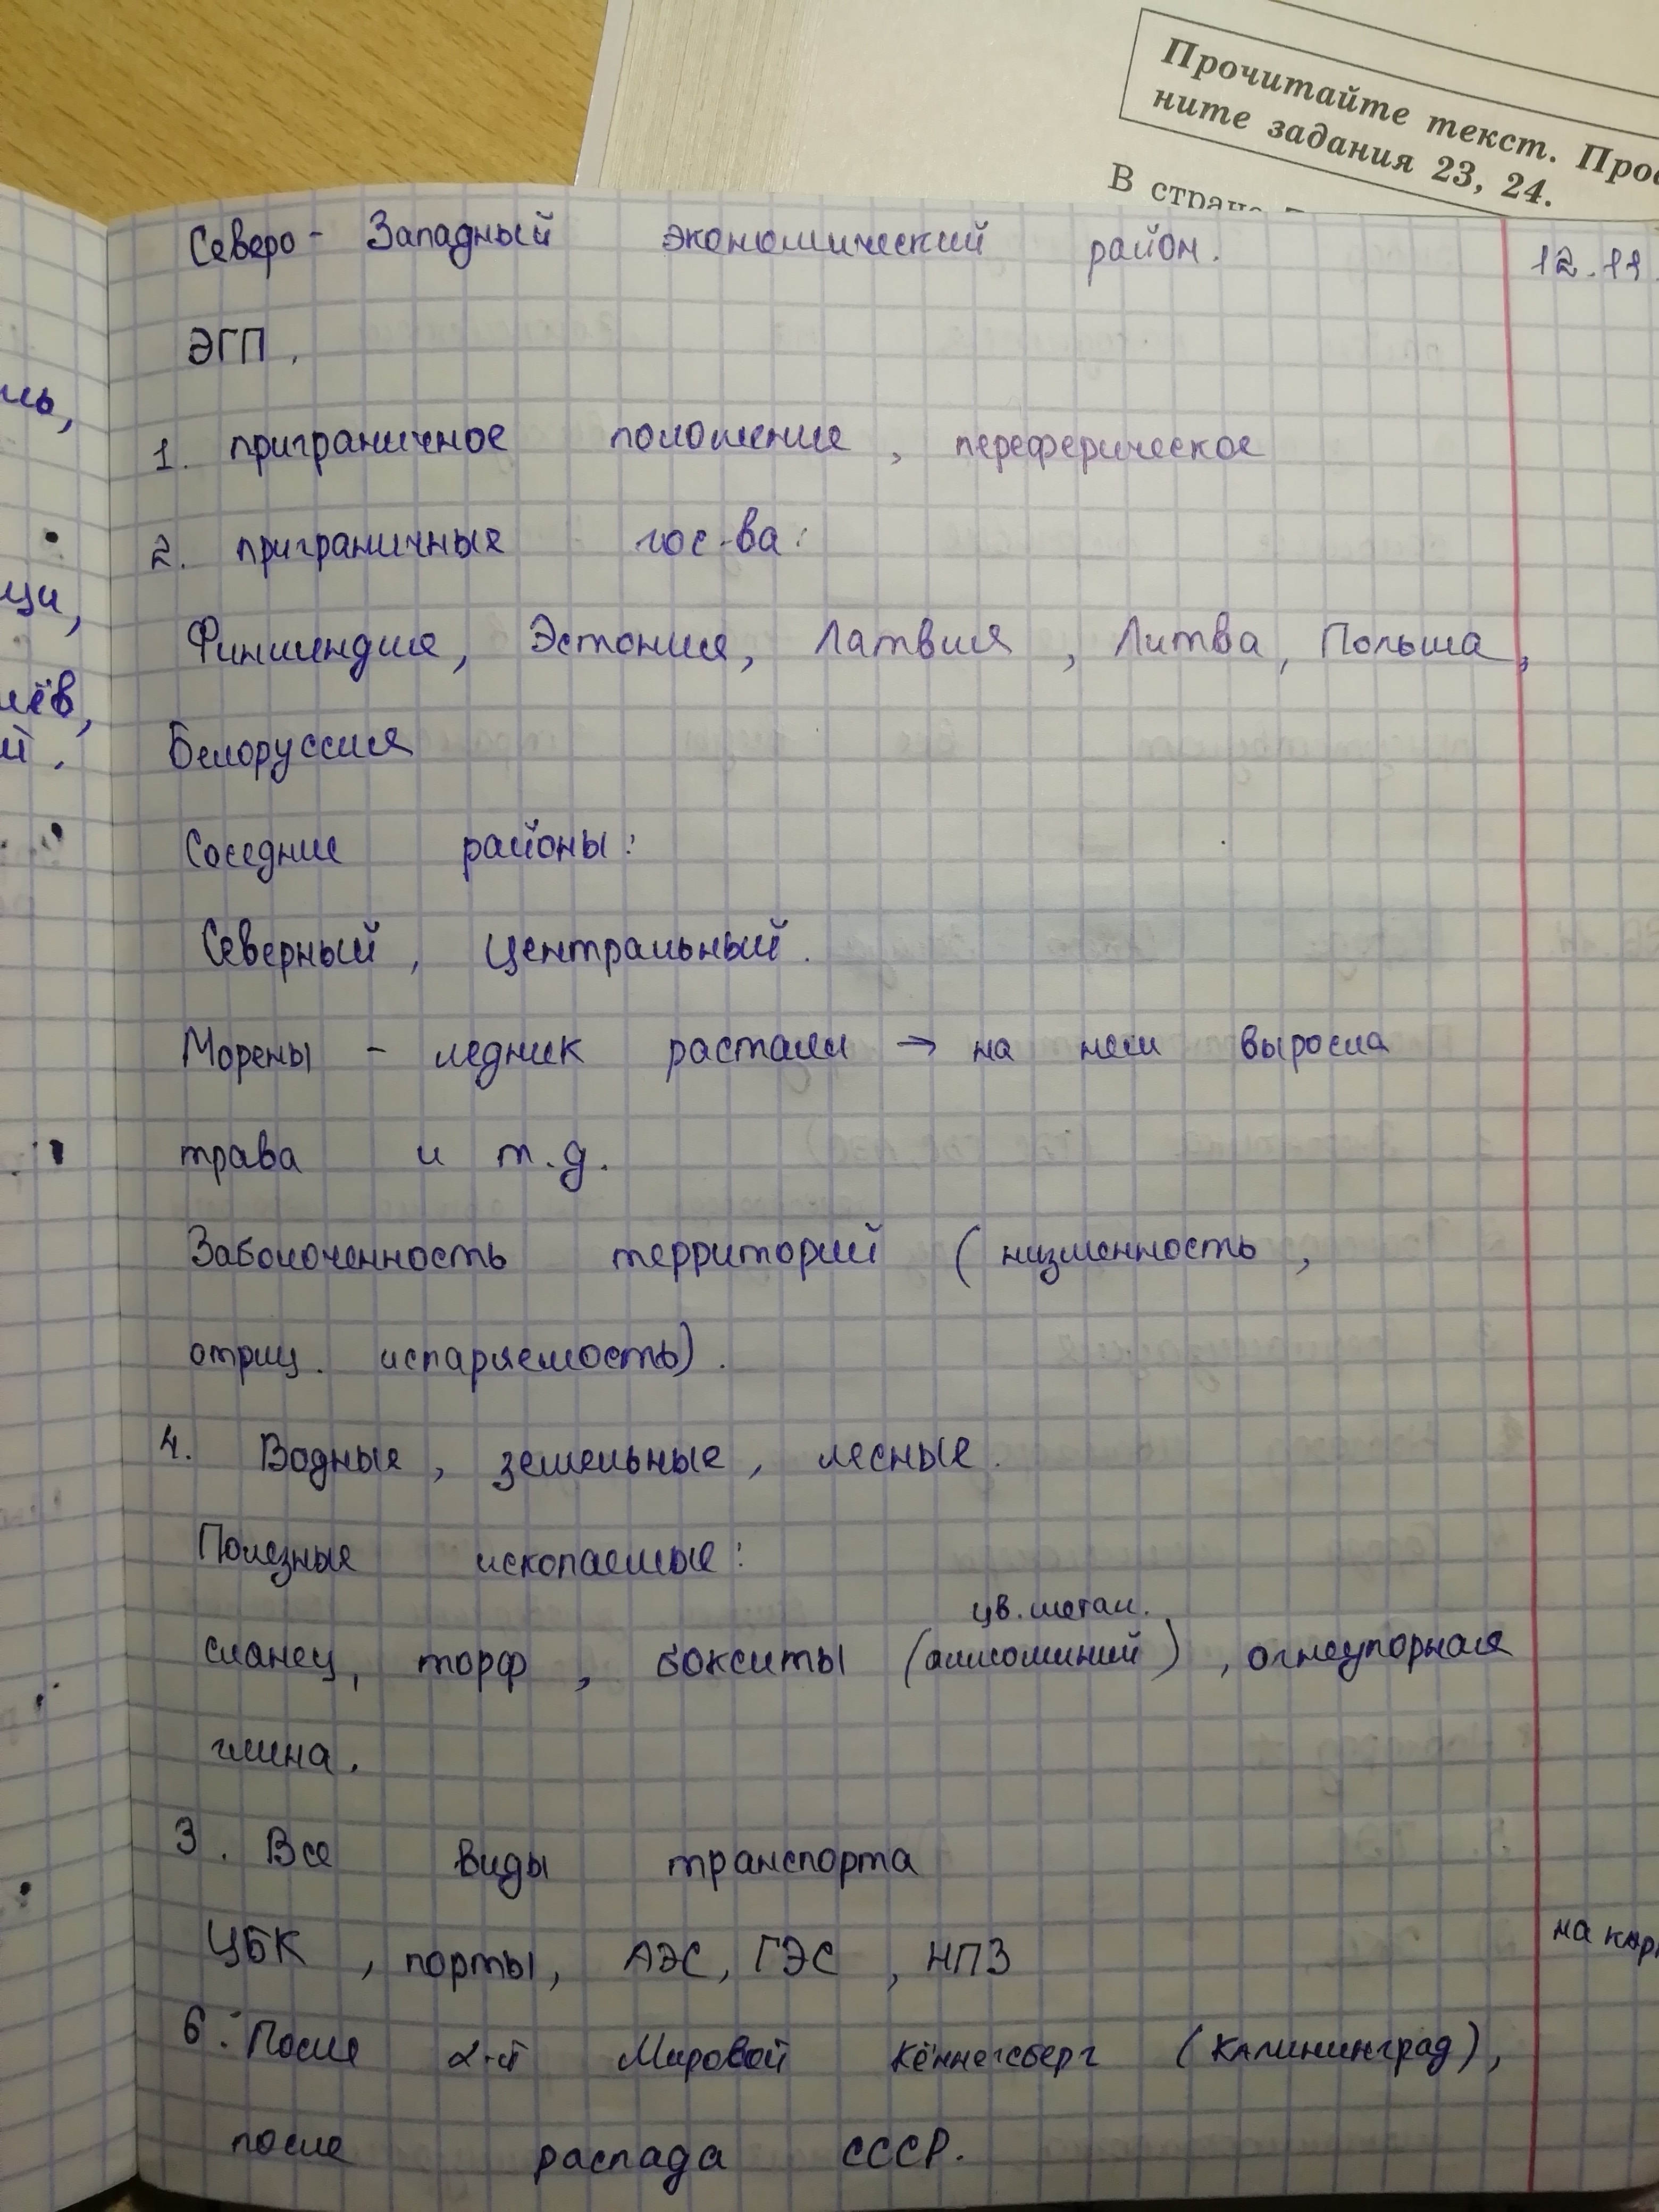 Прочитайте текст. Прос
ните задания 23, 24.
В стране
Северо - Западный экономический район. 12.11.
ЭГП.
1. приграничное положение, переферическое
2. приграничные гос-ва:
Финляндия, Эстония, Латвия, Литва, Польша,
Белоруссия
Соседние районы:
Северный, Центральный.
Морены - ледник растаял → на нём выросла
трава и т.д.
Заболоченность территорий (низменность,
отриц. испаряемость).
4. Водные, земельные, лесные.
Полезные ископаемые:
цв. метал.
сланец, торф, бокситы (алюминий), огнеупорная
глина.
3. Все виды транспорта
ЦБК, порты, АЭС, ГЭС, НПЗ на кар
6. После 2-й Мировой Кённегсберг (Калининград),
после распада СССР.
ль,
щи,
лёв,
й.